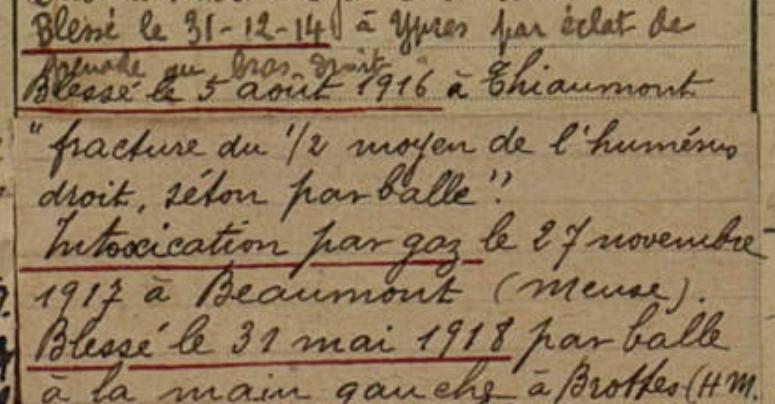 Blessé le 31-12-14 à Ypres par éclat de
grenade au bras droit
Blessé le 5 août 1916 à Thiaumont
"fracture du 1/2 moyen de l'humérus
droit, séton par balle".
Intoxication par gaz le 27 novembre
1917 à Beaumont (Meuse).
Blessé le 31 mai 1918 par balle
à la main gauche à Brottes (H M.